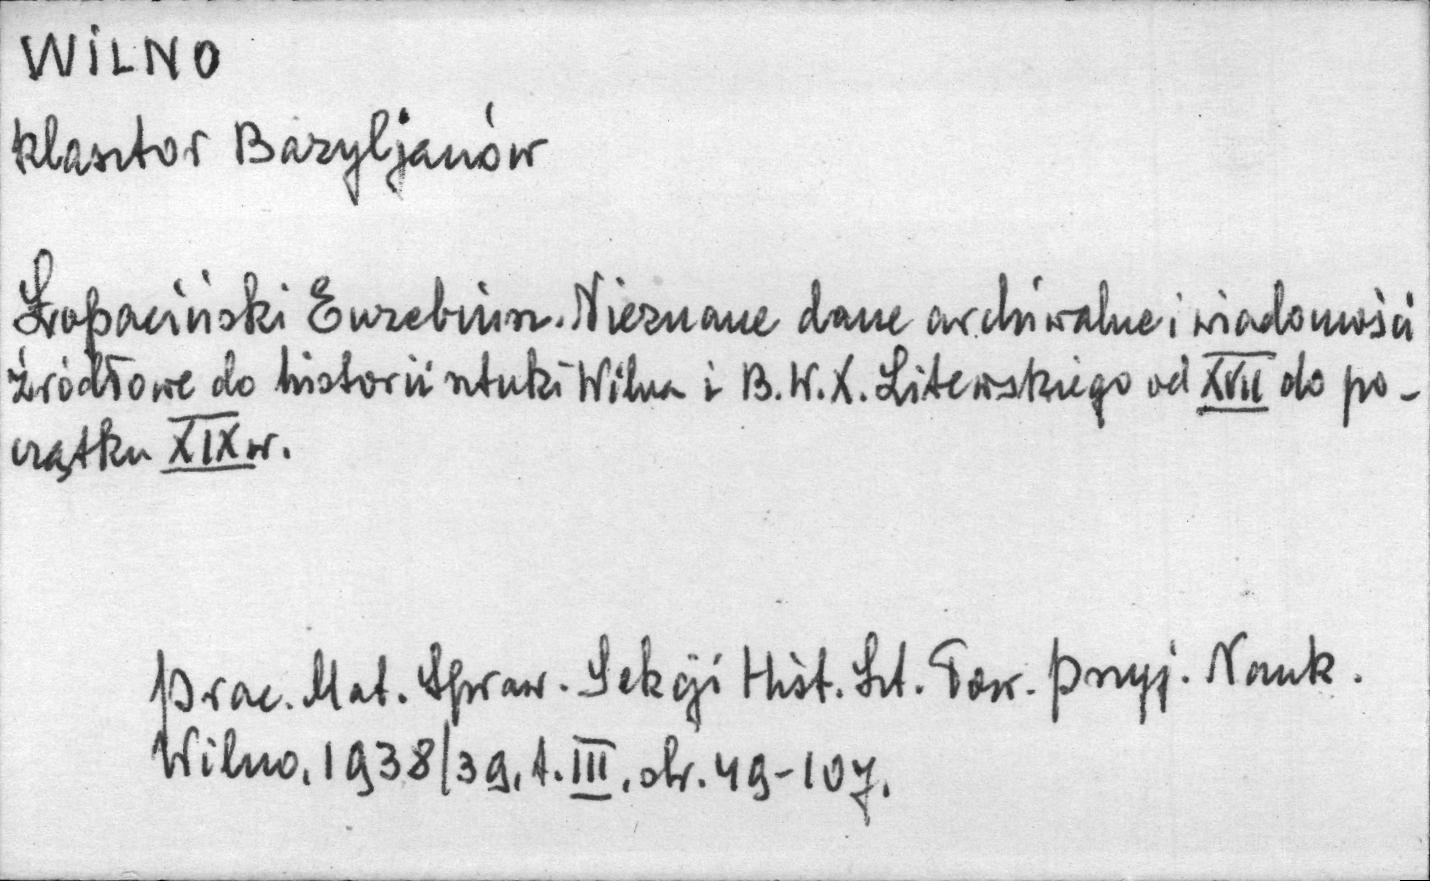 WiLNO
klasztor Bazyljanów
Łopaciński Euzebiusz. Nieznane dane archiwalne i wiadomości
źródłowe do historii sztuki Wilna i B.W.X. Litewskiego od XVII do po-
czątku XIX w.
Prac. Mat. Spraw. Sekcji Hist. Szt. Tow. Przyj. Nauk.
Wilno, 1938/39, t. III, str. 49-107.